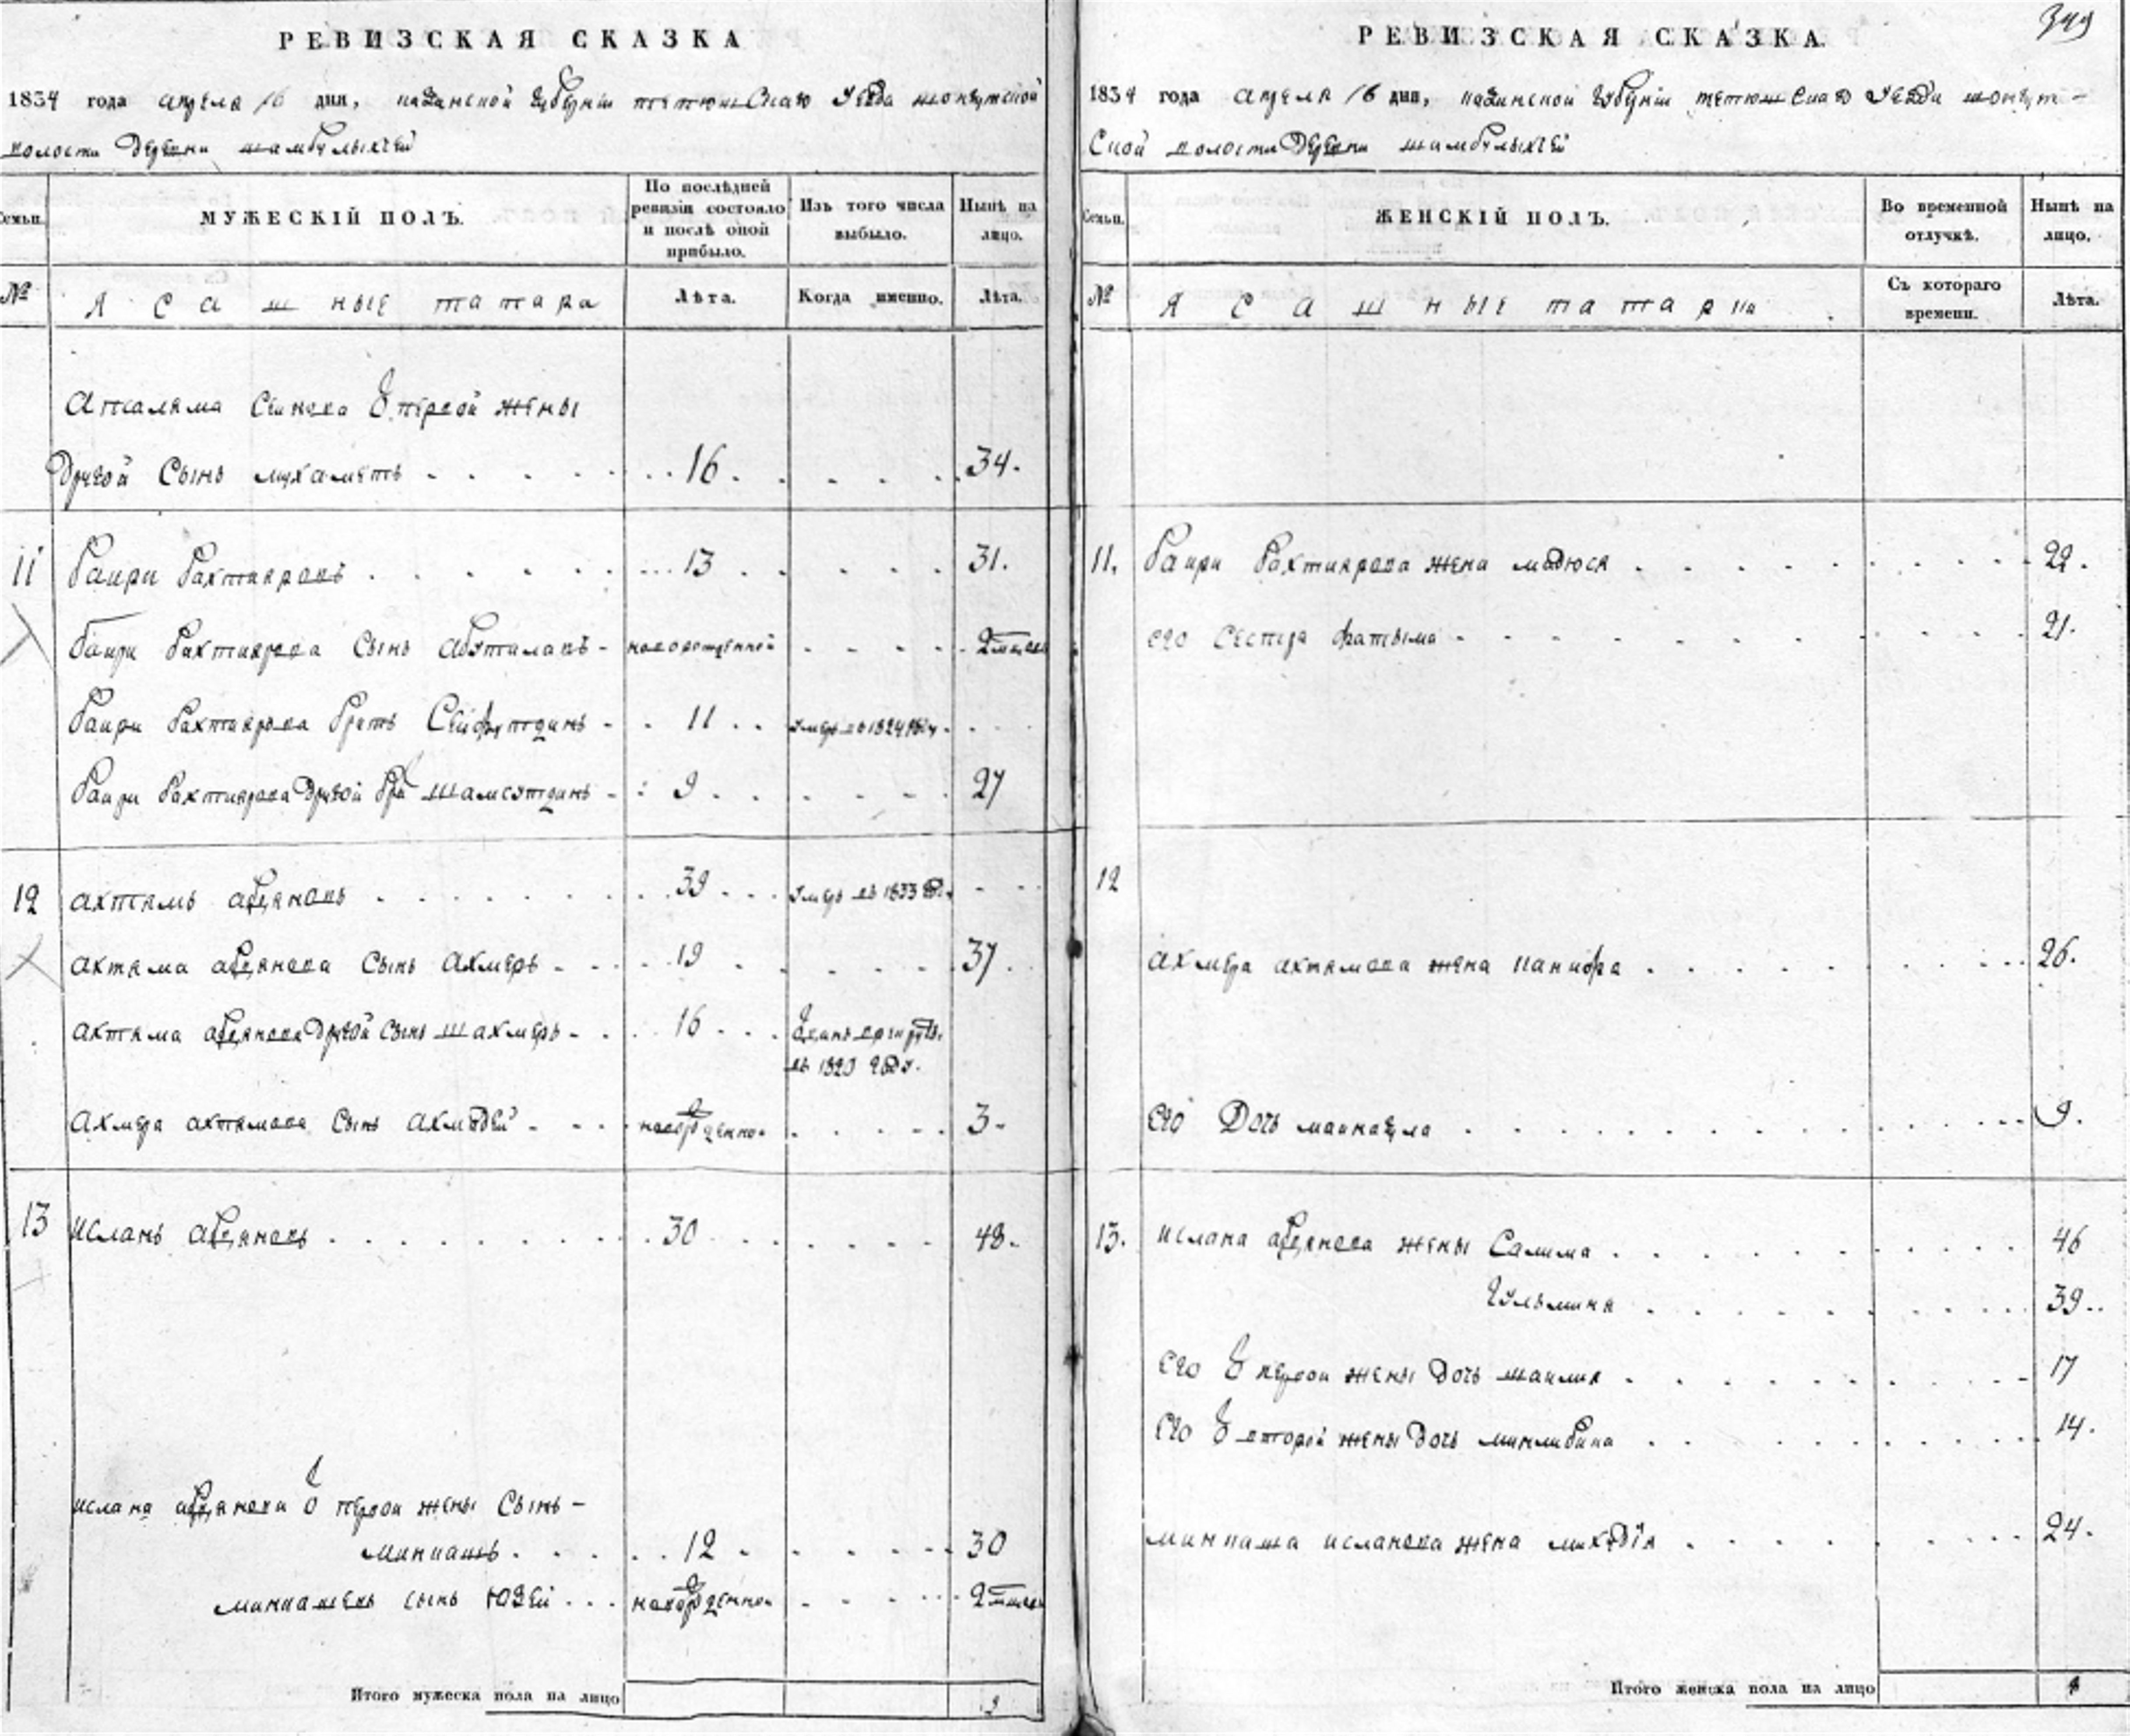 РЕВИЗСКАЯ СКАЗКА
1834 года апреля 16 дня, казанской губернiи тетюшскаго уезда шонгутской
волости деревни шамбулыхчей
Семьи.
МУЖЕСКІЙ ПОЛЪ.
По послѣдней ревизіи состояло и послѣ оной прибыло.
Изъ того числа выбыло.
Нынѣ на лицо.
№
Ясашные татара
Лѣта.
Когда именно.
Лѣта.
апсаляма сеинова от первой жены
другой сынъ мухаметъ 16. 34.
11 баири бахтияровъ 13 31.
баири бахтиярова сынъ абуталапъ новорожденной 2 месец
баири бахтиярова братъ Сейфутдинъ 11 умеръ въ 1824 году
баири бахтиярова другой бра шамсутдинъ 9 27
12 ахтямъ абряновъ 39 умеръ въ 1833 го.
ахтяма абрянова сынъ ахмеръ 19 37
ахтяма абрянова другой сынъ шахмеръ 16
въ 1820 году.
ахмера ахтямова сынъ ахмадей новорожденно 3
13 исланъ абряновъ 30 48.
ислана абрянова от первой жены сынъ
минпашъ 12 30
минпашевъ сынъ юзей новорожденно 2 месец
Итого мужеска пола на лицо 9
349
РЕВИЗСКАЯ СКАЗКА
1834 года апреля 16 дня, казанской губернiи тетюшскаго уезда шонгут-
ской волости деревни шамбулыхчей
Семьи.
ЖЕНСКІЙ ПОЛЪ.
Во временной отлучкѣ.
Нынѣ на лицо.
№
Ясашные татарки
Съ котораго времени.
Лѣта.
11. баири бахтиярова жена мадюся 22.
его сестра фатыма 21.
12
ахмера ахтямова жена ханифа 26.
его дочь 9.
13. ислана абрянова жены Салима 46
гульмина 39
его от первои жены дочь маилия 17
его от второй жены дочь минлибика 14.
минпаша исланова жена 24.
Итого женска пола на лицо